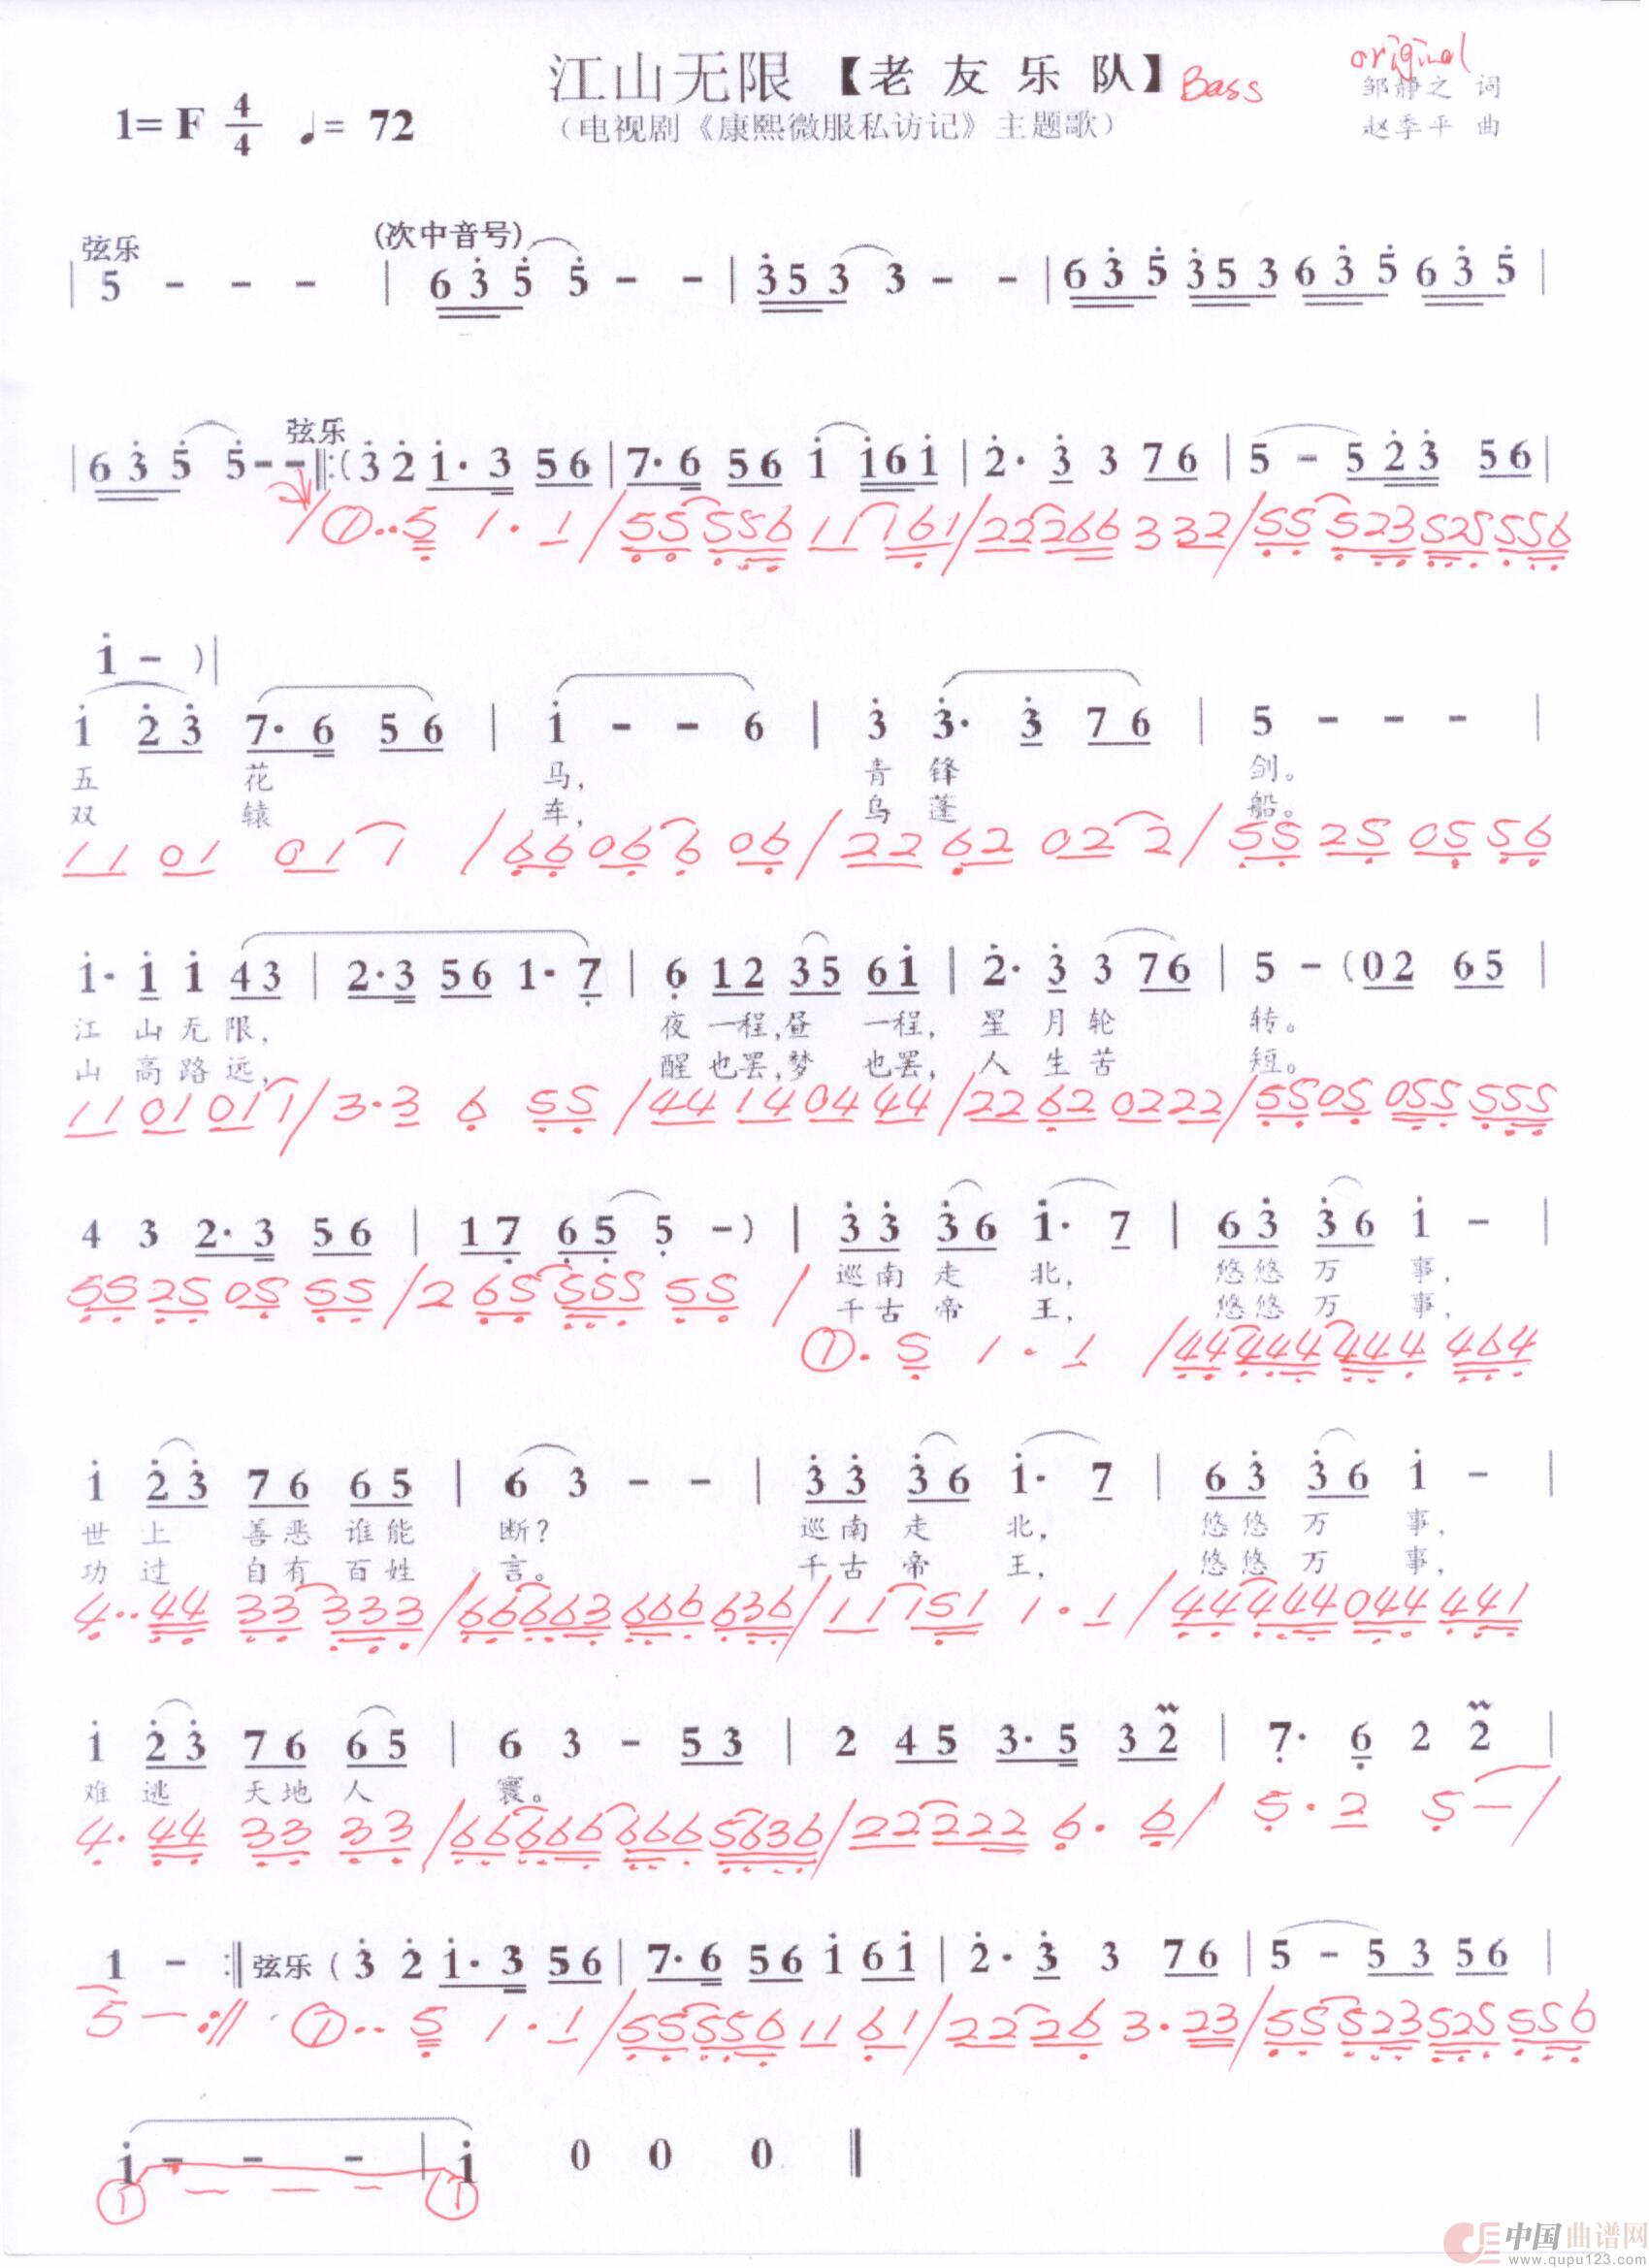 江山无限【老友乐队】Bass original
1=F 4/4 ♩= 72 （电视剧《康熙微服私访记》主题歌） 邹静之 词
赵季平 曲
弦乐 (次中音号)
5 - - - | 6 3 5 5 - - | 3 5 3 3 - - | 6 3 5 3 5 3 6 3 5 6 3 5 |
弦乐
| 6 3 5 5 - - ‖:( 3 2 1· 3 5 6 | 7· 6 5 6 1 1 6 1 | 2· 3 3 7 6 | 5 - 5 2 3 5 6 |
/ ①·· 5 1 · 1 / 5 5 5 5 6 1 1 1 6 1 / 2 2 2 6 6 3 3 2 / 5 5 5 2 3 5 2 5 5 5 6
1 - )|
1 2 3 7· 6 5 6 | 1 - - 6 | 3 3· 3 7 6 | 5 - - - |
五 花 马， 青 锋 剑。
双 辕 车， 乌 蓬 船。
1 1 0 1 0 1 1 / 6 6 0 6 6 0 6 / 2 2 6 2 0 2 2 / 5 5 2 5 0 5 5 6
1· 1 1 4 3 | 2· 3 5 6 1· 7 | 6 1 2 3 5 6 1 | 2· 3 3 7 6 | 5 - ( 0 2 6 5 |
江 山 无 限， 夜 一程，昼 一程， 星 月 轮 转。
山 高 路 远， 醒 也罢，梦 也罢， 人 生 苦 短。
1 1 0 1 0 1 1 / 3 · 3 6 5 5 / 4 4 1 4 0 4 4 4 / 2 2 6 2 0 2 2 2 / 5 5 0 5 0 5 5 5 5 5
4 3 2· 3 5 6 | 1 7 6 5 5 - ) | 3 3 3 6 1· 7 | 6 3 3 6 1 - |
巡 南 走 北， 悠 悠 万 事，
5 5 2 5 0 5 5 5 / 2 6 5 5 5 5 5 5 / 千 古 帝 王， 悠 悠 万 事，
①· 5 1 · 1 / 4 4 4 4 4 4 4 4 4 6 4
1 2 3 7 6 6 5 | 6 3 - - | 3 3 3 6 1· 7 | 6 3 3 6 1 - |
世 上 善 恶 谁 能 断？ 巡 南 走 北， 悠 悠 万 事，
功 过 自 有 百 姓 言。 千 古 帝 王， 悠 悠 万 事，
4·· 4 4 3 3 3 3 3 / 6 6 6 6 3 6 6 6 6 3 6 / 1 1 1 5 1 1 · 1 / 4 4 4 4 4 0 4 4 4 4 1
1 2 3 7 6 6 5 | 6 3 - 5 3 | 2 4 5 3· 5 3 2 | 7· 6 2 2 |
难 逃 天 地 人 寰。
4· 4 4 3 3 3 3 / 6 6 6 6 6 6 6 6 5 6 3 6 / 2 2 2 2 2 6 · 6 / 5 · 2 5 — /
1 - :‖ 弦乐 ( 3 2 1· 3 5 6 | 7· 6 5 6 1 6 1 | 2· 3 3 7 6 | 5 - 5 3 5 6 |
5 — :// ①·· 5 1 · 1 / 5 5 5 5 6 1 1 6 1 / 2 2 2 6 3 · 2 3 / 5 5 5 2 3 5 2 5 5 5 6
1 - - - | 1 0 0 0 ‖
① — — — ①
中国曲谱网
www.qupu123.com